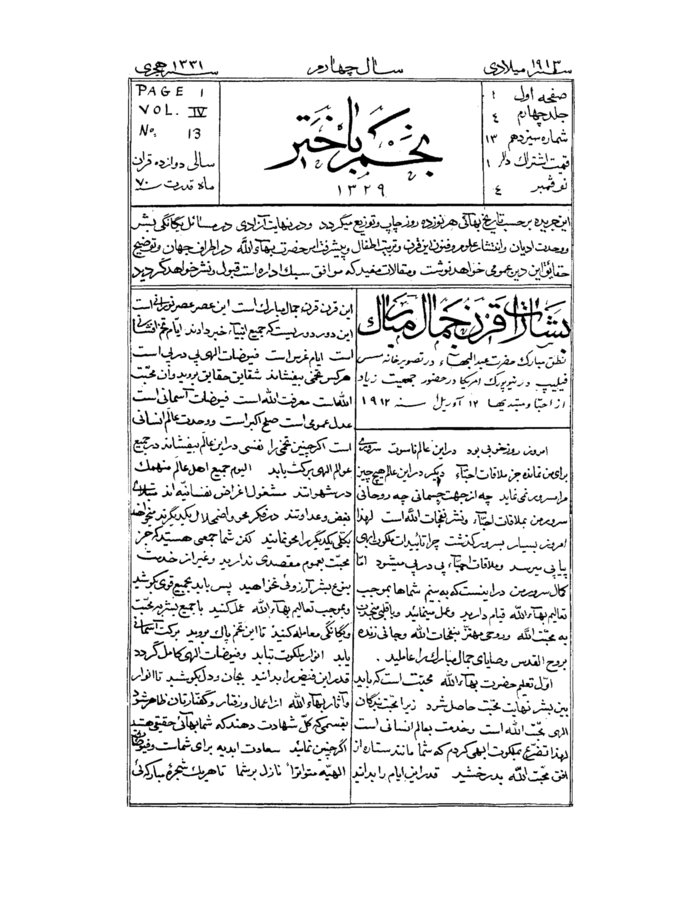 سنه ۱۹۱۳ میلادی
سال چهارم
سنه ۱۳۳۱ هجری
صفحه اول ۱
جلد چهارم ٤
شماره سیزدهم ۱۳
قیمت اشتراک دلار ۱
نوفمبر ٤
نجم باختر
۱۳۲۹
PAGE 1
VOL. IV
No. 13
سالی دوازده قران
ماه قدرت سنه ۷۰
این جریده برحسب تاریخ بهائی هر نوزده روز چاپ و توزیع میگردد و در نهایت آزادی در مسائل یگانگی بشر
و وحدت ادیان و انتشار علوم و فنون این قرن و تربیة اطفال و پیشرفت امر حضرت بهاءالله در اطراف جهان و توضیح
حقایق این دین عمومی خواهد نوشت و مقالات مفید که موافق سبک اداره است قبول و نشر خواهد گردید
بشارات قرن جمال مبارک
نطق مبارک حضرت عبدالبهاء در تصویرخانه مسس
فیلیپ در نیویورک امریکا در حضور جمعیت زیاد
از احبا و مبتدیها ۱۲ آوریل سنه ۱۹۱۲
امروز، روز خوبی بود در این عالم ناسوت سروری
برای من نمانده جز ملاقات احباء دیگر در این عالم هیچ چیز
مرا مسرور نمی نماید چه از جهت جسمانی چه روحانی
سرور من بملاقات احباء و نشر نفحات الله است لهذا
امروز بسیار بسرور گذشت چرا تأییدات ملکوت ابهی
پیاپی میرسد و ملاقات احباء پی در پی میشود اما
کمال سرور من در اینست که به بینم شماها بموجب
تعالیم بهاءالله قیام دارید و عمل مینمائید و با قلبی منجذب
به محبت الله و روحی مهتز بنفحات الله و جانی زنده
بروح القدس وصایای جمال مبارک را عاملید.
اول تعلیم حضرت بهاءالله محبت است که باید
بین بشر نهایت محبت حاصل شود زیرا محبت بندگان
الهی محبت الله است و خدمت بعالم انسانی است
لهذا تضرع بملکوت ابهی کردم که شما مانند ستاره از
افق محبت الله بدرخشید قدر این ایام را بدانید
این قرن قرن جمال مبارک است این عصر عصر نورانی است
این دور دوریست که جمیع انبیاء خبر دادند ایام تخم افشانی
است ایام غرس است فیوضات الهی پی در پی است
هر کس تخمی بیفشاند شقایق حقایق بروید و آن محبت
الله است معرفت الله است فیوضات آسمانی است
عدل عمومی است صلح اکبر است و وحدت عالم انسانی
است اگر چنین تخمی را نفسی در این عالم بیفشاند در جمیع
عوالم الهی برکت یابد الیوم جمیع اهل عالم منهمک
در شهواتند مشغول اغراض نفسانیه اند مبتلای
بغض و عداوتند در فکر محو و اضمحلال یکدیگرند میخواهند
بکلی یکدیگر را محو نمایند لکن شما جمعی هستید که جز
محبت بعموم مقصدی ندارید و غیر از خدمت
بنوع بشر آرزوئی نخواهید پس باید بجمیع قوی کوشید
و بموجب تعالیم بهاءالله عمل کنید با جمیع بشر بمحبت
و یگانگی معامله کنید تا این تخم پاک بروید برکت آسمانی
یابد انوار ملکوت بتابد و فیوضات الهی کامل گردد
قدر این فیض را بدانید بجان و دل کوشید تا انوار
و آثار بهاءالله از اعمال و رفتار و گفتارتان ظاهر شود
بقسمی که کل شهادت دهند که شما بهائی حقیقی هستید
اگر چنین نمائید سعادت ابدیه برای شماست و فیوضات
الهیه متواتراً نازل بر شما تا هر یک شجره مبارکه ئی